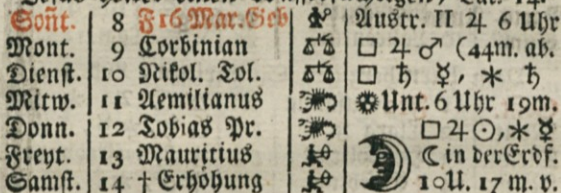 Soñt. 8 F 16 Mar. Geb Austr. II ♃ 6 Uhr
Mont. 9 Corbinian ♎ □ ♃ ♂ (44m. ab.
Dienst. 10 Nikol. Tol. ♎ □ ♄ ☿, ⚹ ♄
Mitw. 11 Aemilianus ♏ Unt. 6 Uhr 19m.
Donn. 12 Tobias Pr. ♏ □ ♃ ☉, ⚹ ☿
Freyt. 13 Mauritius ♐ ☾ in der Erdf.
Samst. 14 † Erhöhung ♐ 10U. 17 m. v.